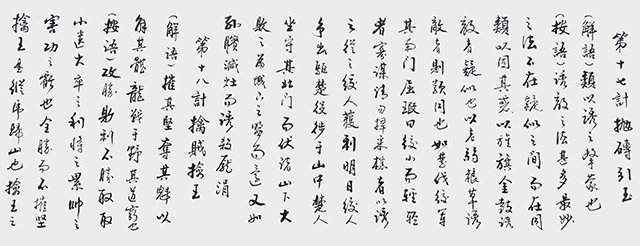 第十七計 拋磚引玉
(解語)類以誘之擊蒙也
(按語)誘敵之法甚多最妙
之法不在疑似之間而在同
類以固其惑以旌旗金鼓誘
敵者疑似也以老弱糧草誘
敵者則類同也如楚伐絞軍
其南門屈瑕曰絞小而輕輕
者寡謀請勿捍采樵者以誘
之從之絞人獲利明日絞人
爭出驅楚役徙于山中楚人
坐守其北門而伏諸山下大
敗之為城下之盟而還又如
孫臏減灶而誘殺龐涓
第十八計 擒賊擒王
(解語)摧其堅奪其魁以
解其體龍戰于野其道窮也
(按語)攻勝則利不勝取取
小遺大卒之利將之累帥之
害功之虧也全勝而不摧堅
擒王是縱虎歸山也擒王之